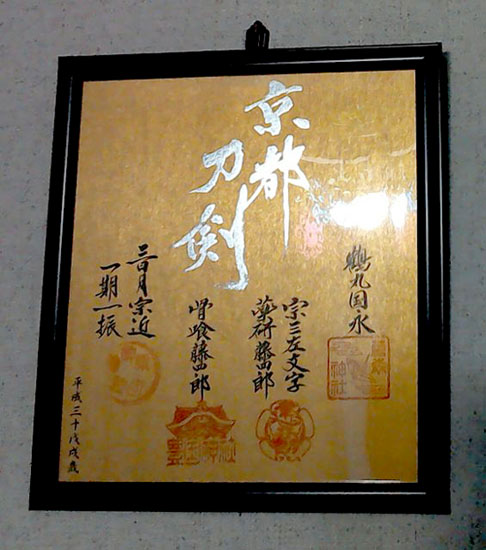 京都
刀剣
鶴丸国永
宗三左文字
薬研藤四郎
骨喰藤四郎
豊国神社
三日月宗近
一期一振
平成三十戊戌歳